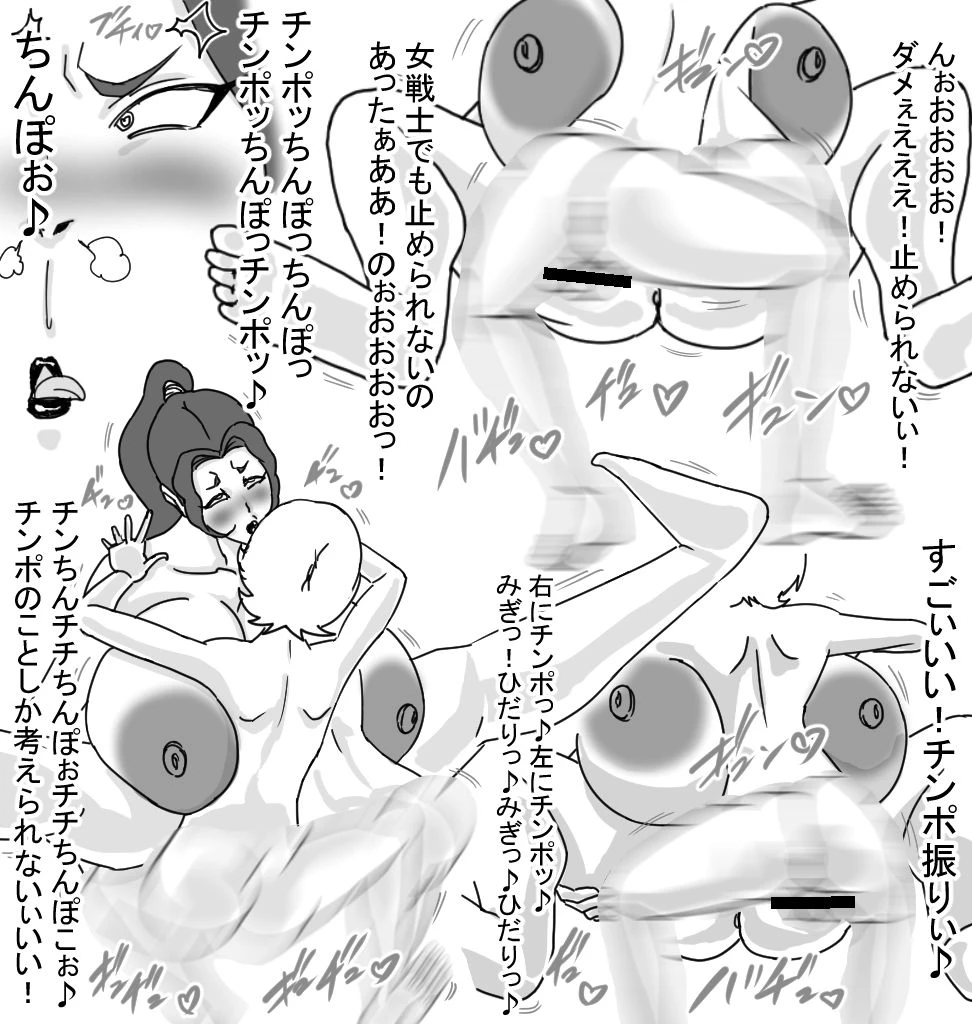 んぉおおおお！
ダメぇえええ！止められないぃ！
女戦士でも止められないの
あったぁああ！のぉおおおおっ！
チンポッちんぽっちんぽっ
チンポッちんぽっチンポッ♪
ちんぽぉ♪
すごいいい！チンポ振りぃ♪
右にチンポっ♪左にチンポッ♪
みぎっ！ひだりっ♪みぎっ♪ひだりっ♪
チンちんチチちんぽぉチチちんぽこぉ♪
チンポのことしか考えられないぃいい！
ギュン♡
バギュ♡
ギュ♡
ギュン♡
ギュー♡
ギュー♡
ギュン♡
ギュギュ♡
ギュギュ♡
ギュ♡
バギュ♡